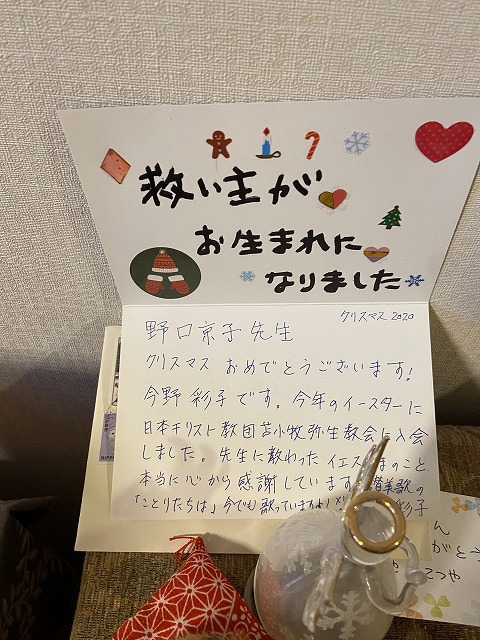 救い主が
お生まれに
なりました
クリスマス 2020
野口京子先生
クリスマス おめでとうございます!
今野 彩子です。今年のイースターに
日本キリスト教団苫小牧弥生教会に入会
しました。先生に教わった イエスさまのこと
本当に心から感謝しています。讃美歌の
「ことりたちは」今でも歌っていますよ♪
彩子
ん
がとう
てつや